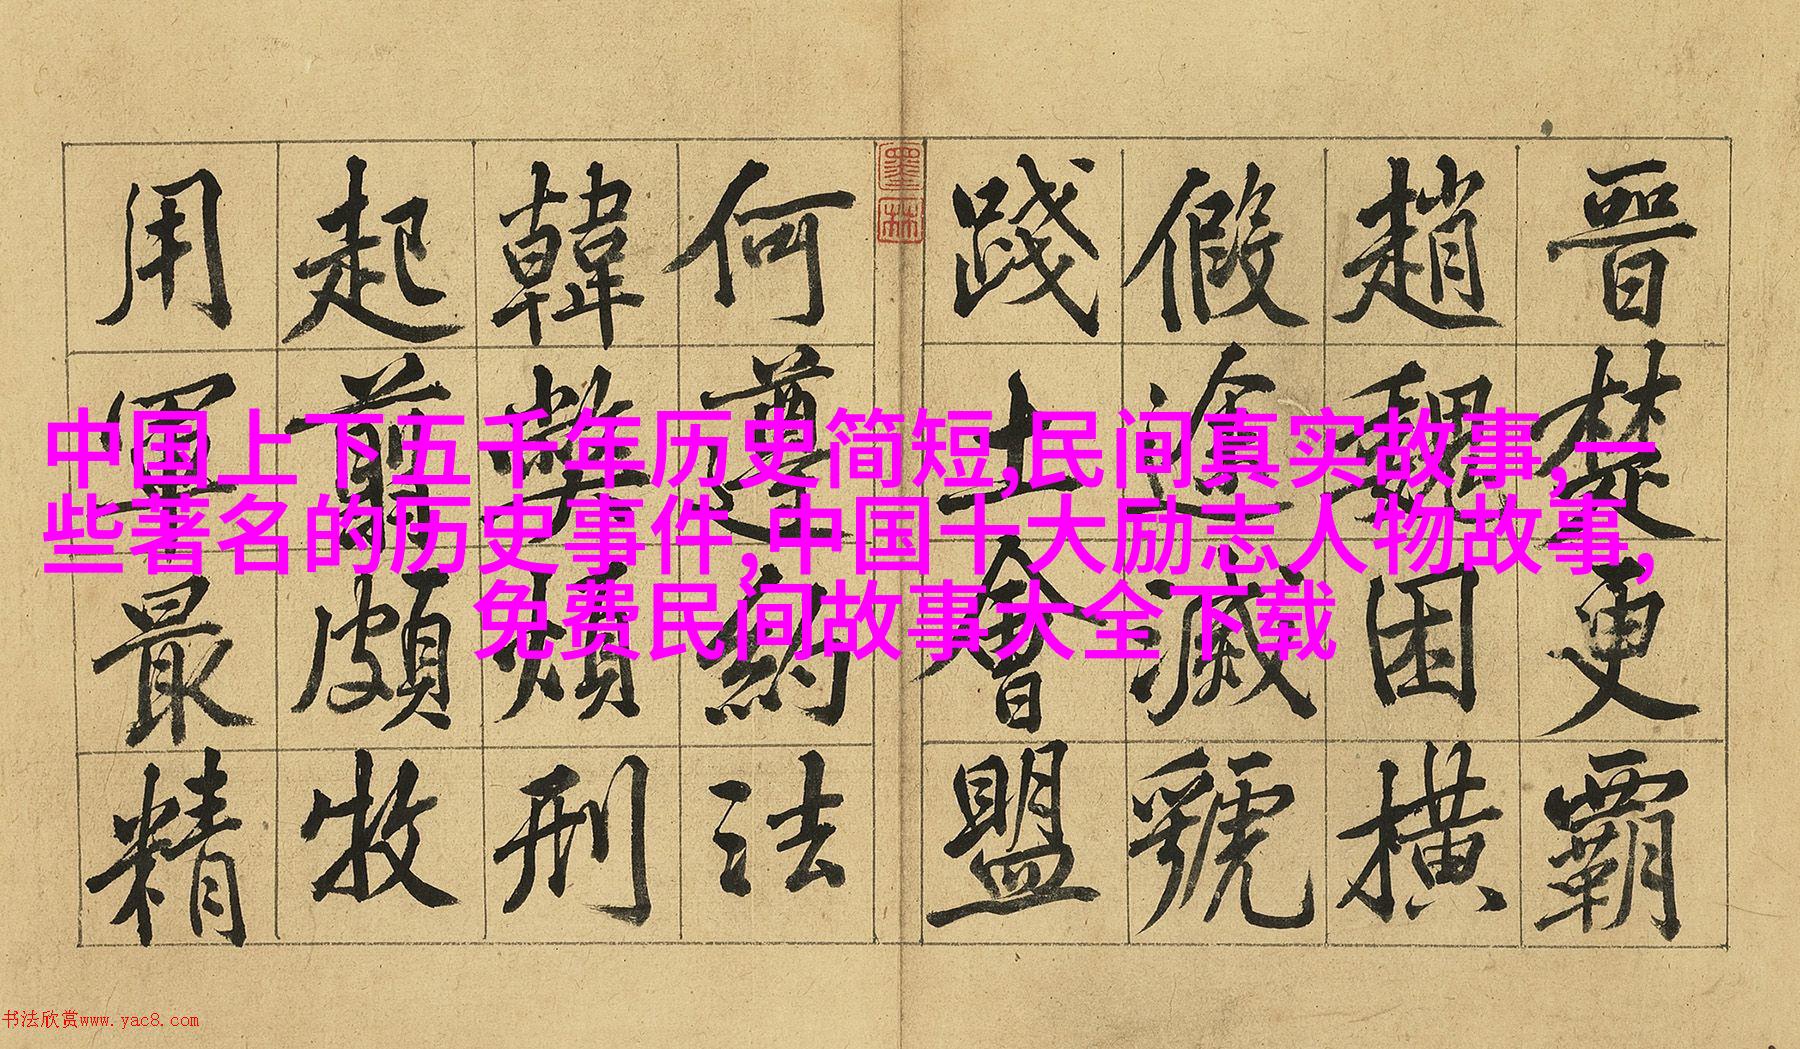 晉楚更霸
趙魏困橫
假途滅虢
踐土會盟
墨林
何遵約法
韓弊煩刑
起翦頗牧
用軍最精
中国上下五千年历史简短,民间真实故事,一
些著名的历史事件,中国十大励志人物故事,
免费民间故事大全下载
书法欣赏www.yac8.com